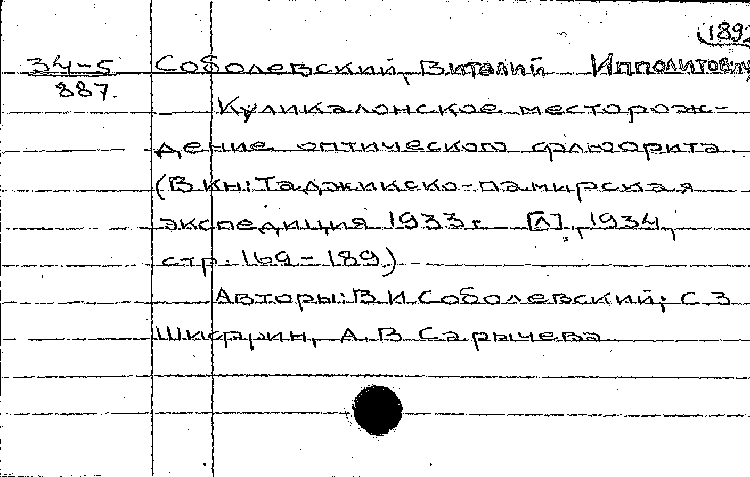 (189
34-5 Соболевский, Виталий Ипполитович
887. Куликалонское месторож-
дение оптического флюорита.
(В кн: Таджикско-памирская
экспедиция 1933 г. [Л], 1934,
стр. 169-189.)
Авторы: В И Соболевский; С З
Шифрин, А. В Сарычева